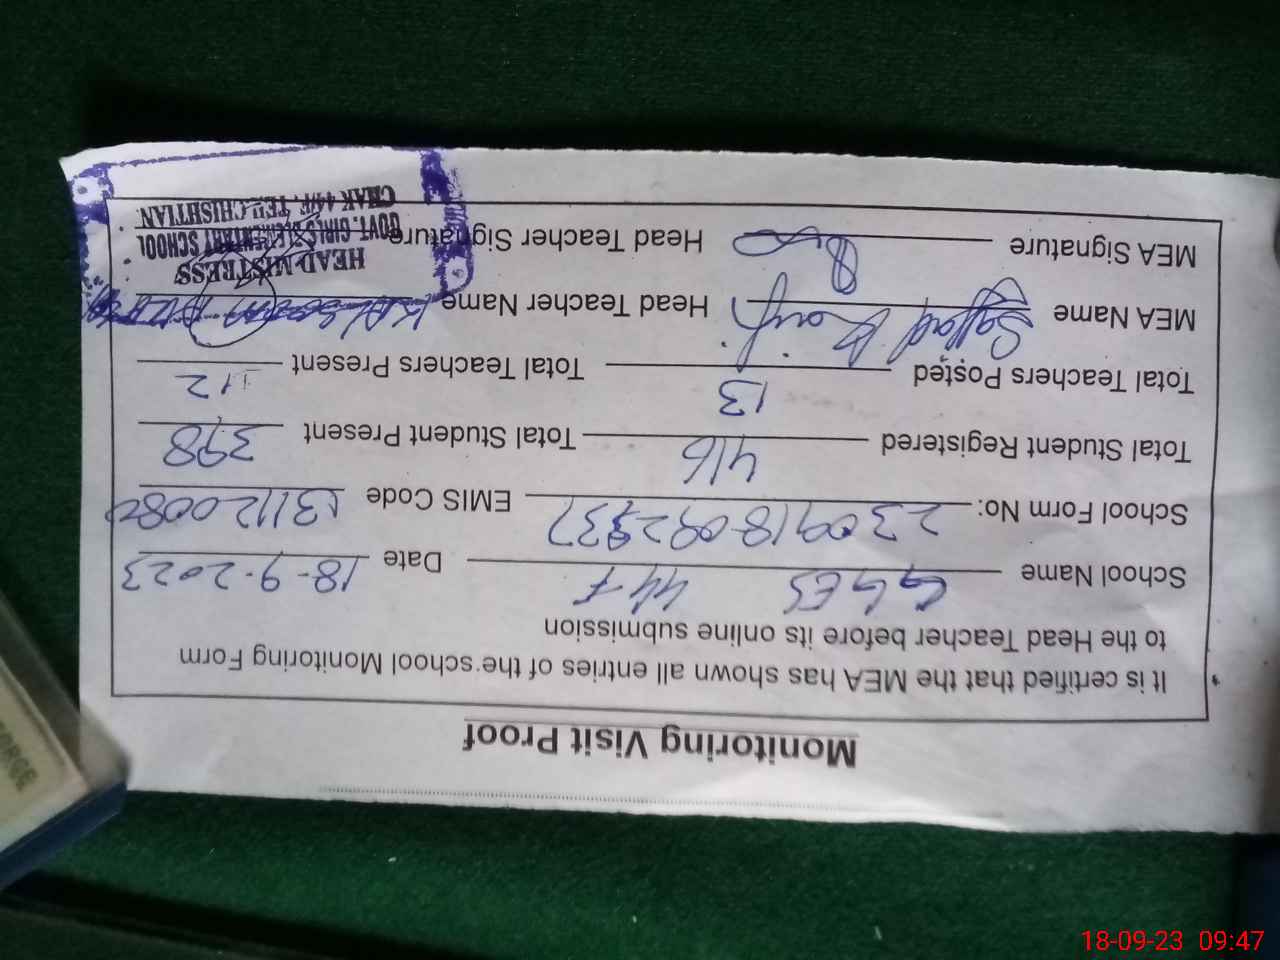 Monitoring Visit Proof
It is certified that the MEA has shown all entries of the school Monitoring Form
to the Head Teacher before its online submission
School Name GGES 44-F Date 18-9-2023
School Form No: 230918-092837 EMIS Code 31120080
Total Student Registered 416 Total Student Present 398
Total Teachers Posted 13 Total Teachers Present 12
MEA Name Sajjad Head Teacher Name
MEA Signature Head Teacher Signature
HEAD MISTRESS
GOVT. GIRLS ELEMENTARY SCHOOL
CHAK 44/F, TEH CHISHTIAN
18-09-23 09:47